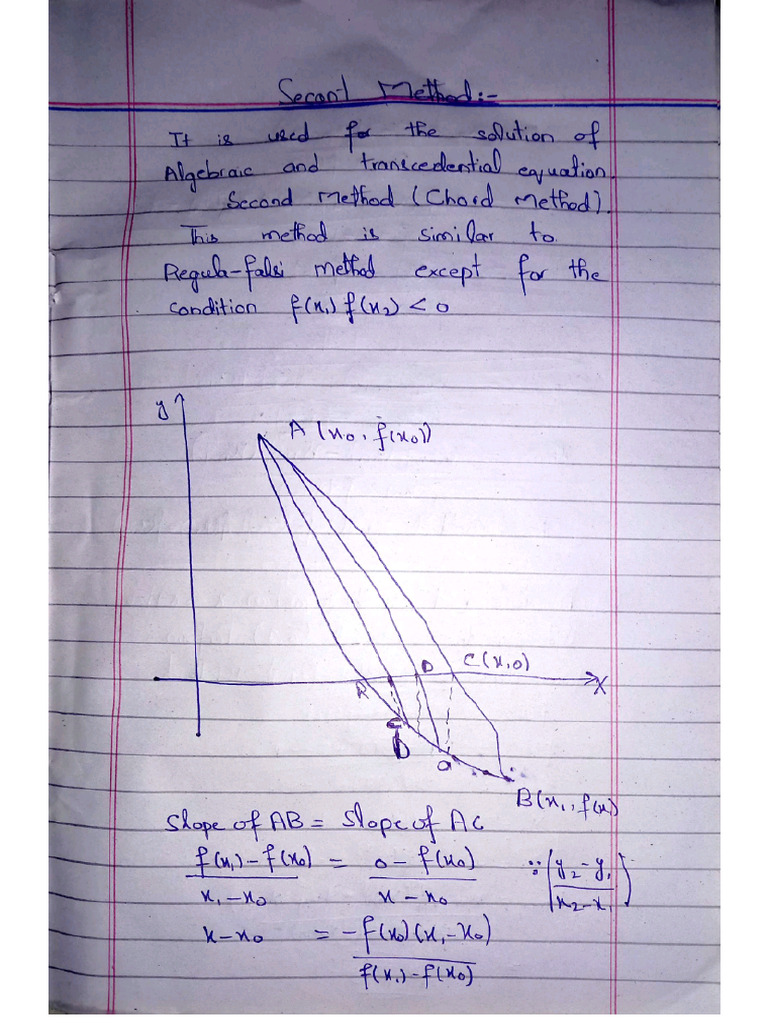 Secant Method:-
It is used for the solution of
Algebraic and transcedential equation.
Secand Method (Chord Method).
This method is similar to
Regula-falsi method except for the
condition f(x₁) f(x₂) < 0
y
A (x₀, f(x₀))
D C(x,0)
R X
D
Q
B(x₁, f(x₁)
Slope of AB = Slope of AC
f(x₁)-f(x₀)/x₁-x₀ = 0-f(x₀)/x-x₀ ∵ (y₂-y₁/x₂-x₁)
x-x₀ = -f(x₀)(x₁-x₀)/f(x₁)-f(x₀)